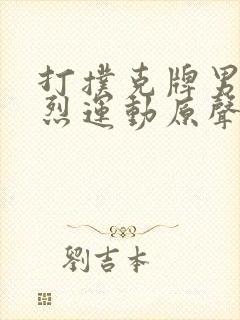 打撲克牌男
烈運動原聲
劉吉本